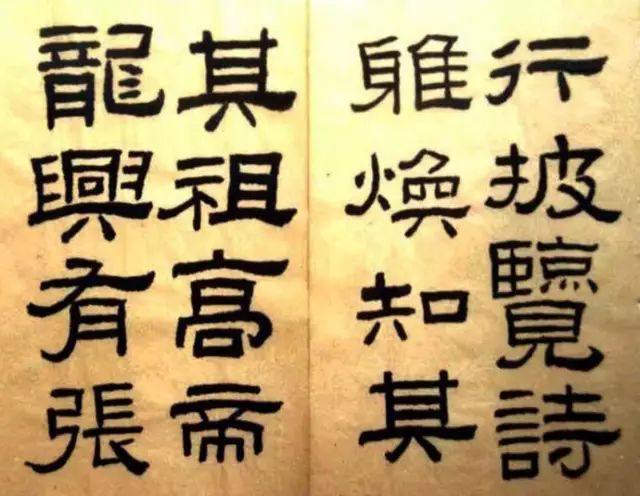 行披覽詩
雅煥知其
其祖高帝
龍興有張